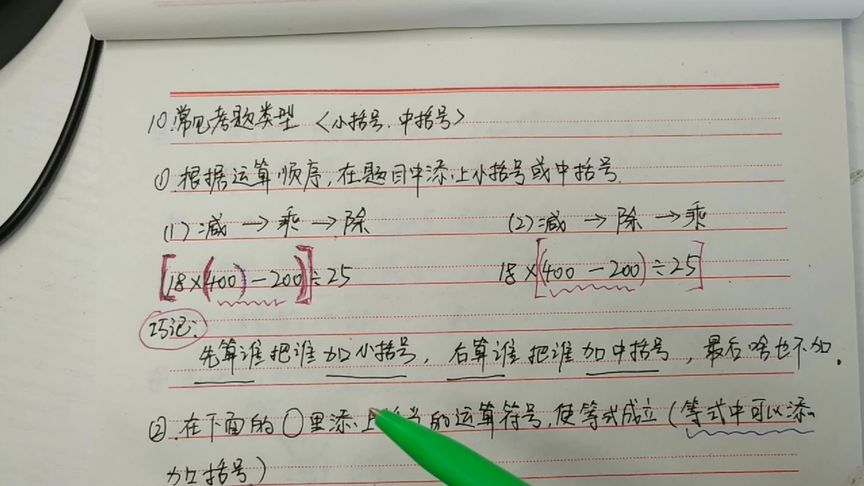 10.常见考题类型〈小括号.中括号〉
①根据运算顺序,在题目中添上小括号或中括号.
(1)减→乘→除 (2)减→除→乘
[18×(400)-200)]÷25 18×[(400-200)÷25]
巧记:
先算谁把谁加小括号,后算谁把谁加中括号,最后啥也不加.
②.在下面的○里添上 的运算符号,使等式成立(等式中可以添
加括号)